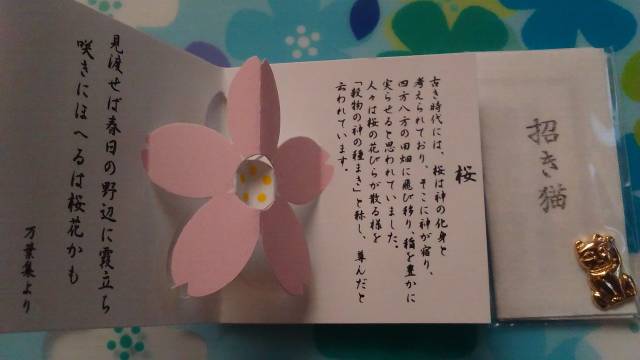 桜
古き時代には、桜は神の化身と
考えられており、そこに神が宿り、
四方八方の田畑に飛び移り、稲を豊かに
実らせると思われていました。
人々は桜の花びらが散る様を
「穀物の神の種まき」と称し、尊んだと
云われています。
見渡せば春日の野辺に霞立ち
咲きにほへるは桜花かも
万葉集より
招き猫